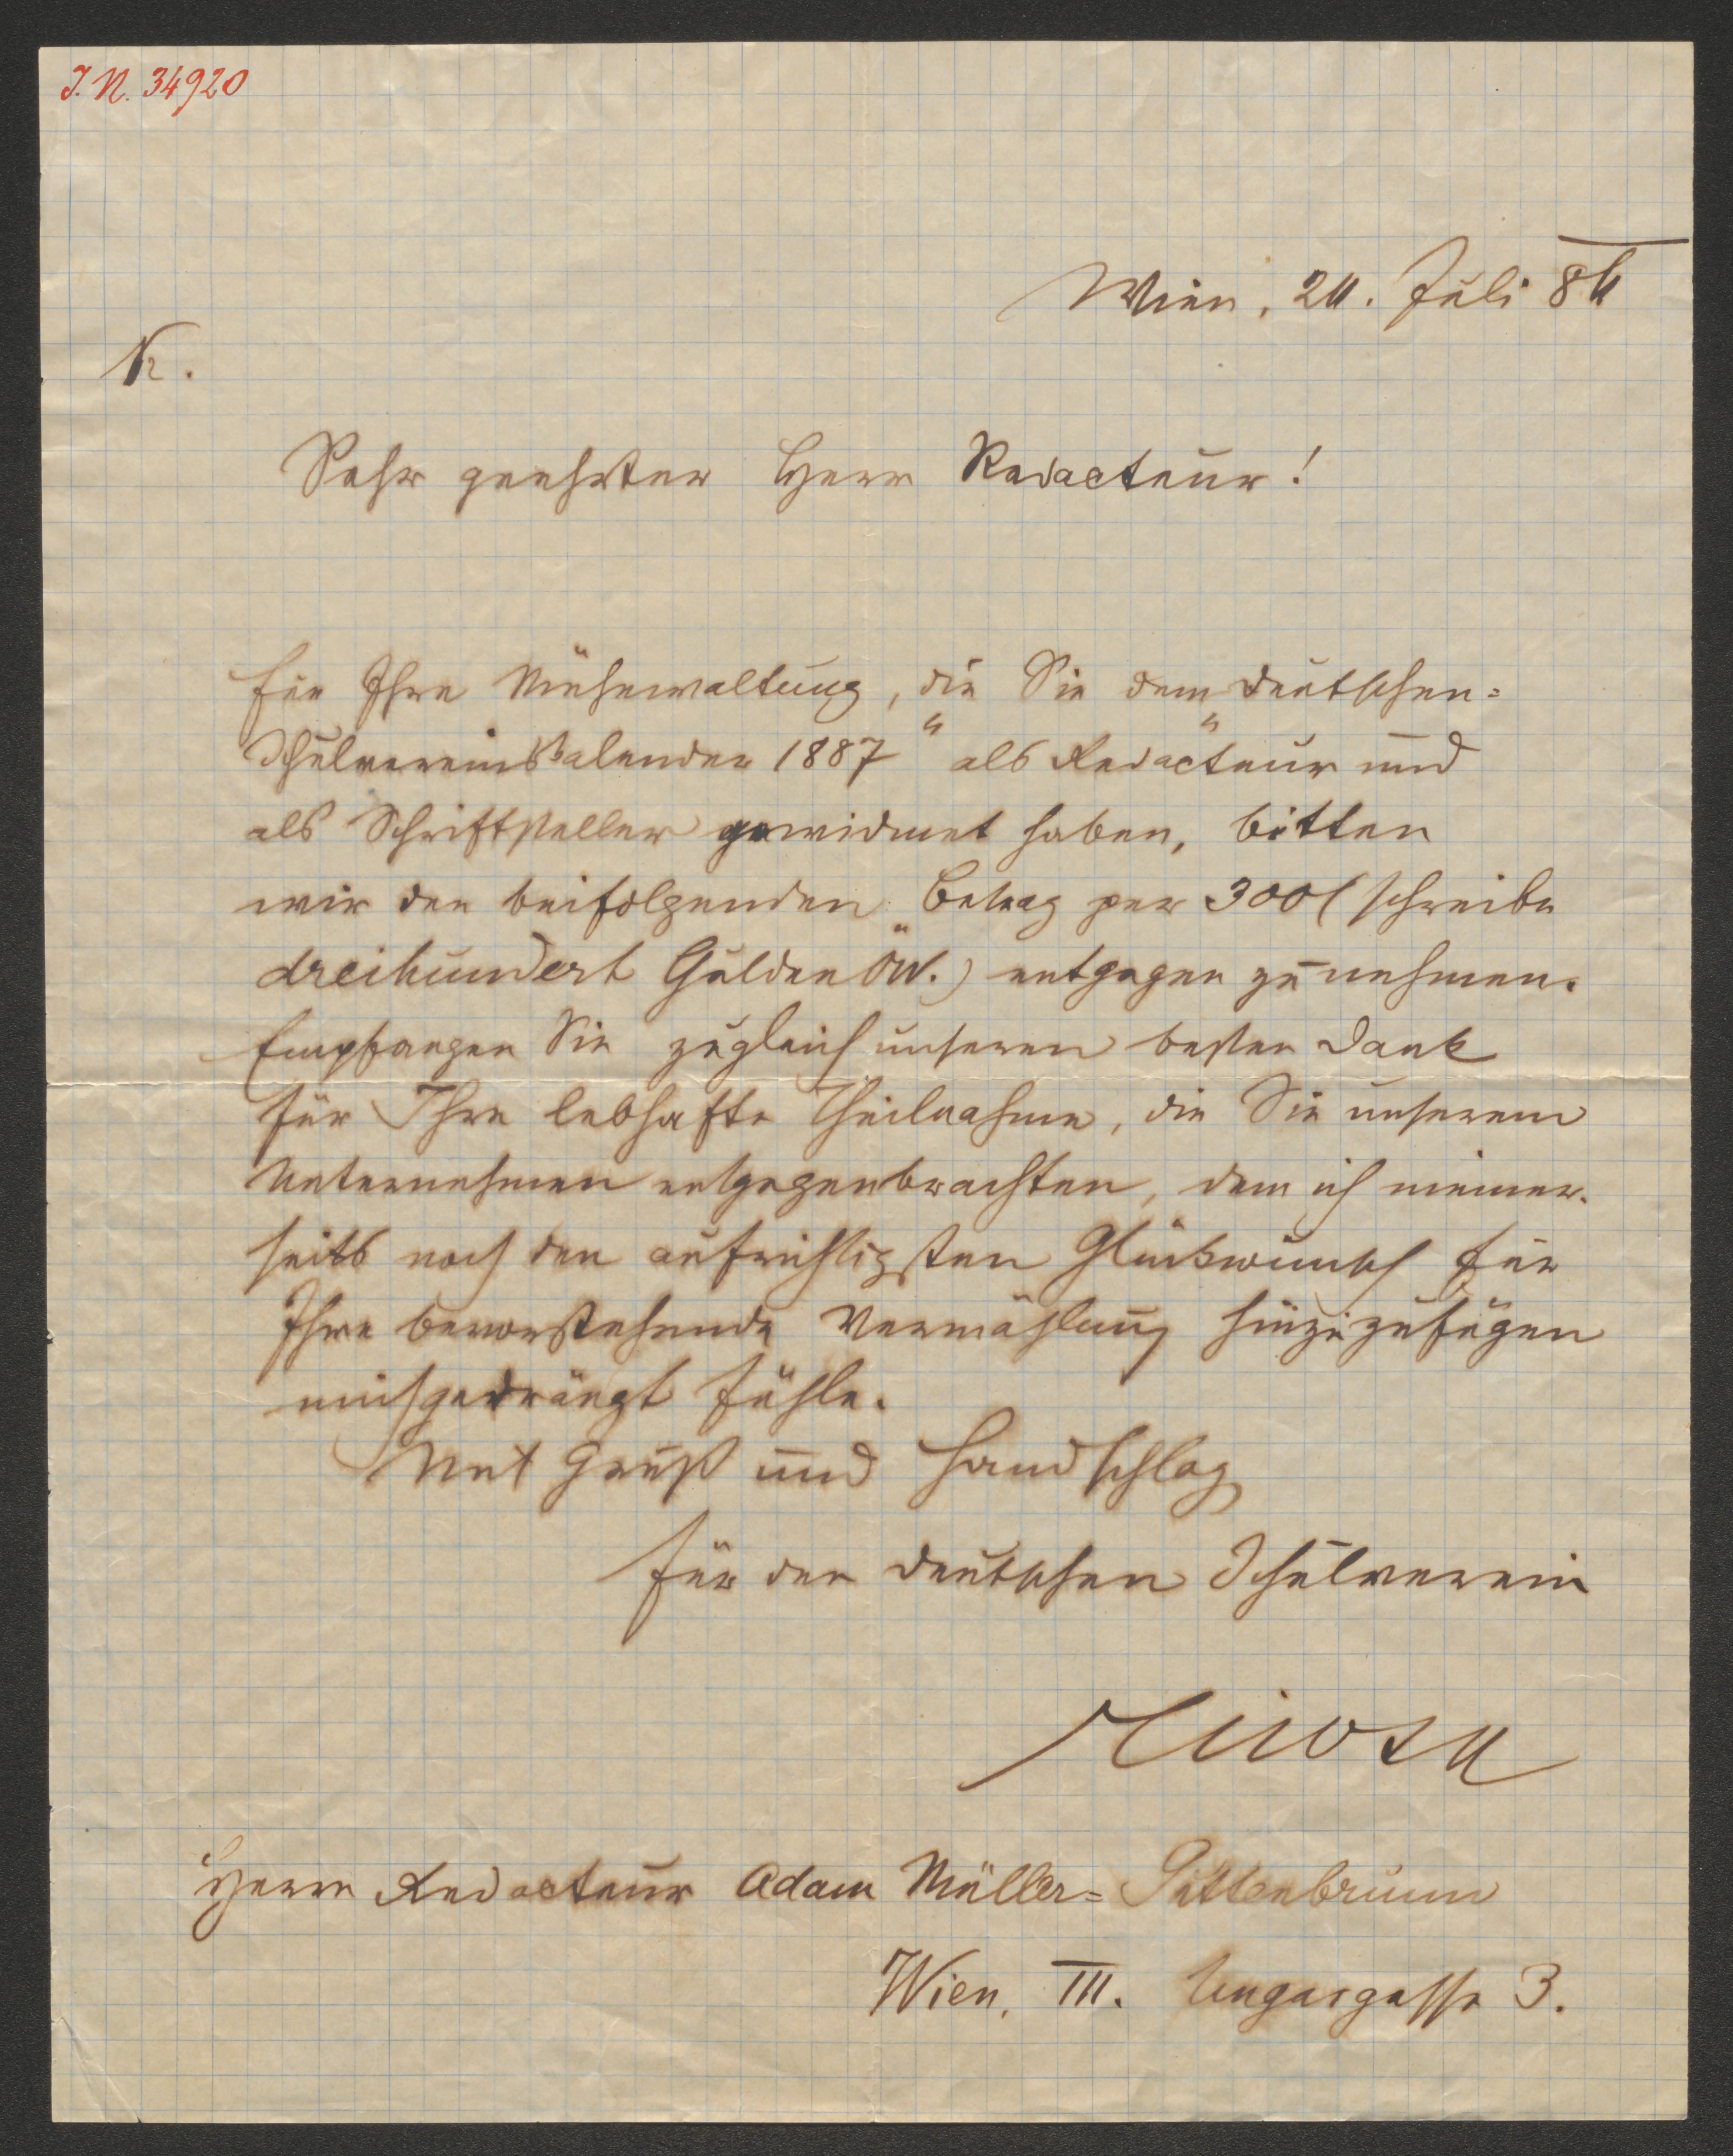 J. N. 34920
Wien, 24. Juli 86
K.
Sehr geehrter Herr Redacteur!
Für Ihre Mühewaltung, die Sie dem „Deutschen=
Schulvereinskalender 1887“ als Redacteur und
als Schriftsteller gewidmet haben, bitten
wir den beifolgenden Betrag per 300 (schreibe
dreihundert Gulden ÖW.) entgegen zu nehmen.
Empfangen Sie zugleich unseren besten Dank
für Ihre lebhafte Theilnahme, die Sie unserem
Unternehmen entgegenbrachten, dem ich meiner-
seits noch den aufrichtigsten Glückwunsch für
Ihre bevorstehende Vermählung hinzuzufügen
mich gedrängt fühle.
Mit Gruß und Handschlag
für den deutschen Schulverein
Herrn Redacteur Adam Müller= Guttenbrunn
Wien, III. Ungargasse 3.